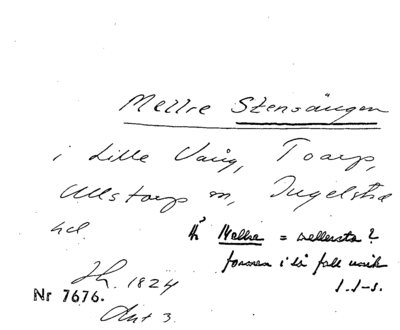 Mellre Stensängen
i Lille Vång, Toarp,
Ullstorp sn, Ingelstad
hd.
Mellre = mellersta?
formen i så fall unik
I. I-s.
Jh. 1824
Nr 7676.
Akt 3.